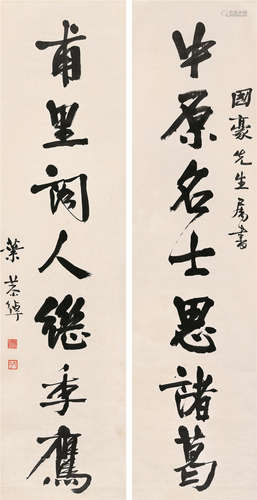 國豪先生屬書
中原名士思諸葛
甫里詞人繼季鷹
葉恭綽